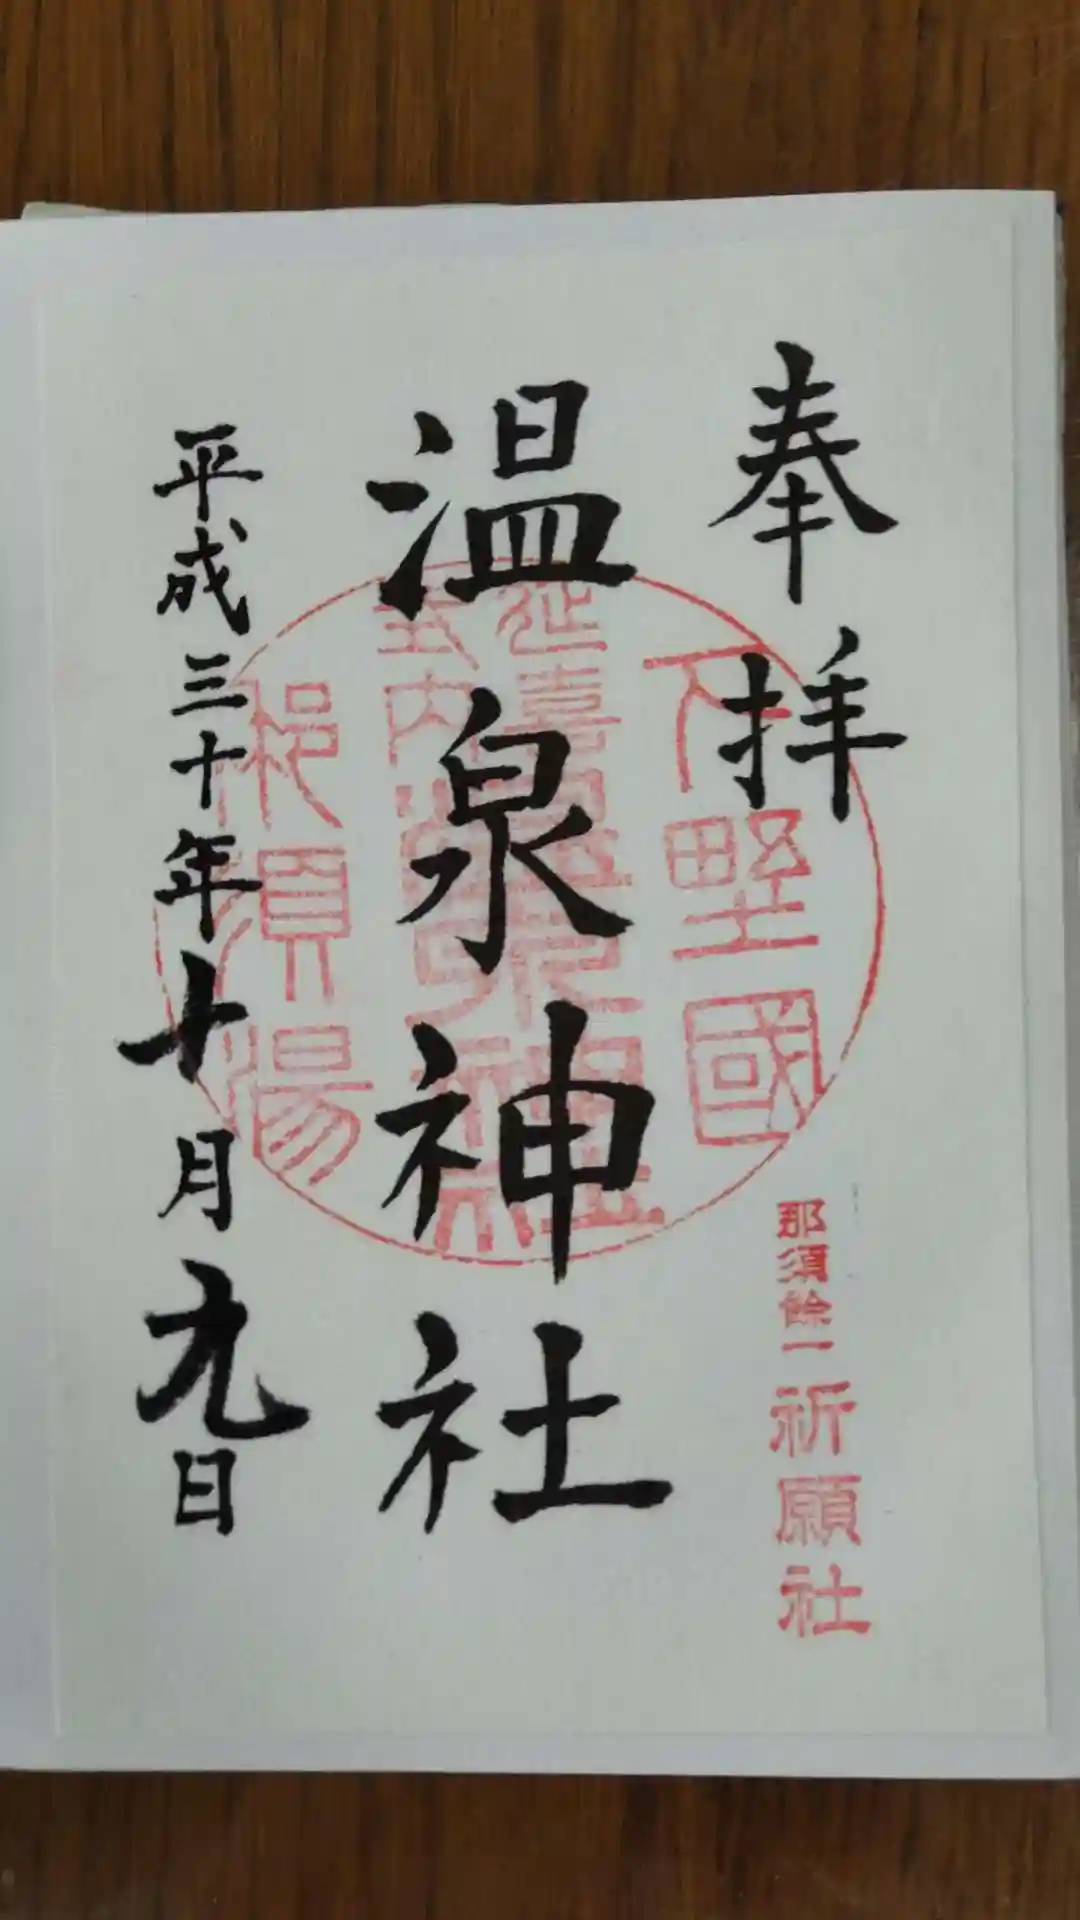 奉拝
下野國
那須餘一祈願社
温泉神社
延喜
式内
温泉神社
那須湯
平成三十年十月九日